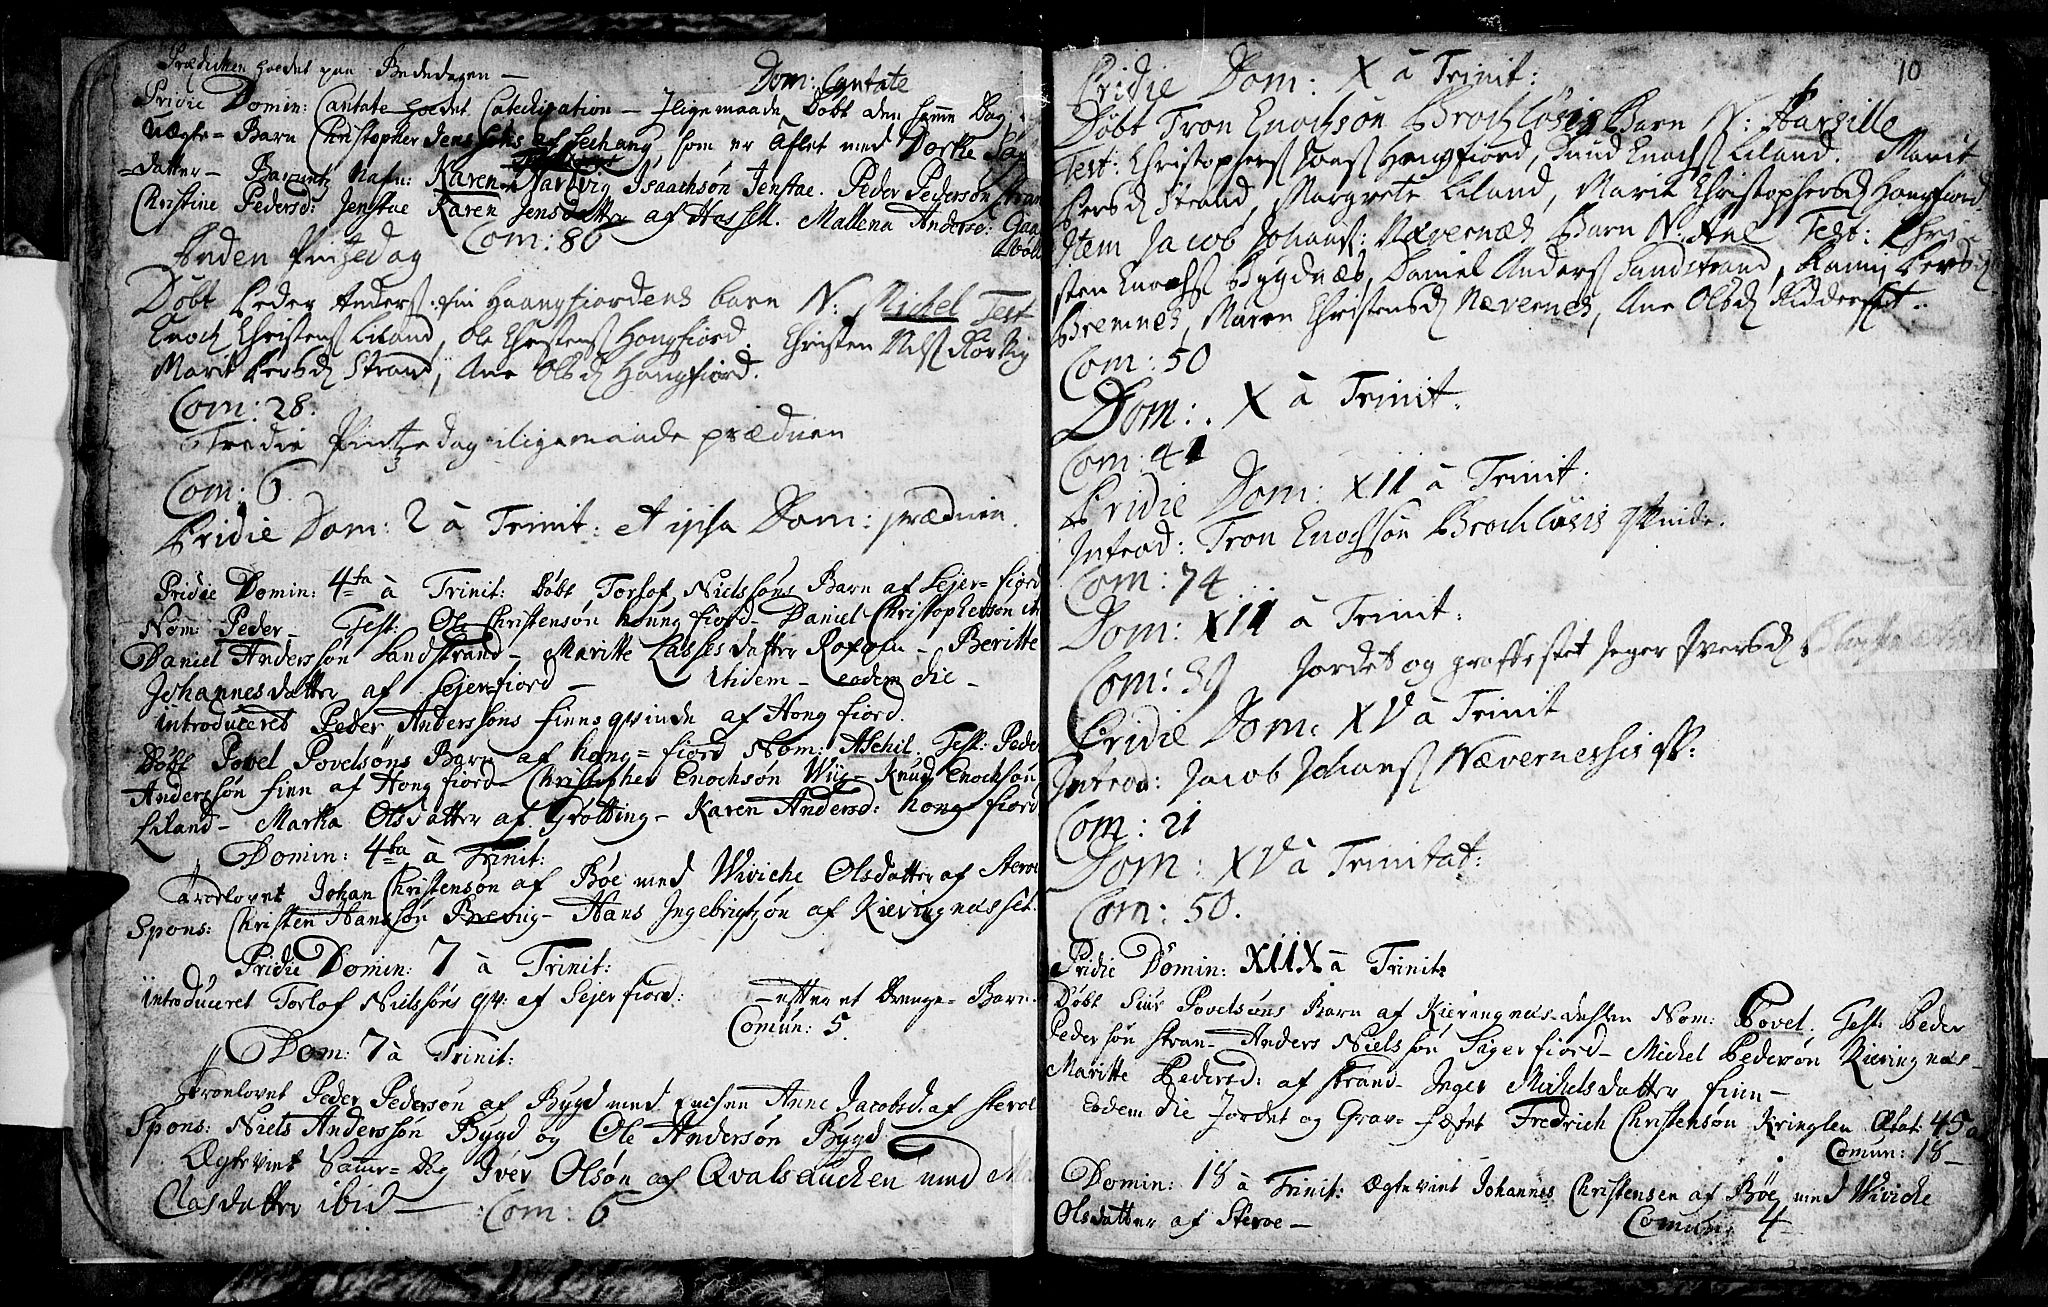 Prædichen hoedet paa Bededagen —
Dom: Cantate
Pridie Domin: Cantate hoedet Catechisation — Iligemaade Døbt den samme Dag
Uægte-Barn Christopher Jensøns af Sechang- som er Aflet med Dorthe
datter — Barnetz Nafn: Karen Hartvig Isaachsøn Jenstae. Peder Pedersøn
Christine Pedersd: Jenstae Karen Jensdatter af Hassell. Mallena Andersd:
Com: 86
Anden Pintzedag
Døbt Peder Anders: fin Haangfiordens barn N: Michel Test
Enoch Christens Liland, Ole Christens Hongfiord. Christen Nils
Marit Persd Strand, Ane Olsd Hongfiord.
Com: 28.
Tredie Pintzedag iligemaade præduen
Com: 6.
Pridie Dom: 2 à Trinit: et ipsa Dom: præduen.
Pridie Domin: 4ta à Trinit: døbt Torlof Nielssøns Barn af Sejer-fiord
Nom: Peder — Test: Ole Christensøn houngfiord — Daniel Christophersøn
Daniel Anderssøn Sandstrand — Maritte Lassesdatter — Beritte
Johannesdatter af Sejerfiord — Ibidem — eadem die —
introduceret Peder Anderssøns finnsqvinde af Hongfiord.
Døbt Povel Povelsøns Barn af hong-fiord Nom: Aschil. Test: Peder
Anderssøn finn af Hongfiord — Christopher Enochsøn Wiig — Knud Enochsøn
Liland — Martha Olsdatter af Grøtting — Karen Andersd: hongfiord
Domin: 4ta à Trinit:
Troelovet Johan Christensøn af Bøe med Wiviche Olsdatter af Steroe
Spons: Christen Hanssøn Brevig — Hans Ingebrigtzøn af Kieringnæsset.
Pridie Domin: 7 à Trinit:
introduceret Torlof Nielssøns qv: af Sejerfiord: — efter et Drenge-Barn.
Comun: 5.
Dom: 7 à Trinit:
Troelovet Peder Pedersøn af Bygd med Enchen Anne Jacobsd. af Steroe
Spons: Niels Anderssøn Bygd og Ole Andersøn Bygd
Ægteviet Samme-Dag Iver Olsøn af Qvalsauchen med
Clasdatter ibid — Com: 6
10
Pridie Dom: X à Trinit:
Døbt Tron Enochsøn Brochløsis Barn N: Harsille
Test: Christophers Joens Hongfiord, Knud Enochs Liland. Marit
Persd Strand, Margrete Liland, Marit Christophersd Hongfiord.
Item Jacob Johans: Nævernæs Barn N: Ane Test: Chri-
sten Enochs Bygdnæs, Daniel Anders Sandstrand, Persd
Bremnes, Maren Christensd Nævernes, Ane Olsd
Com: 50
Dom: X à Trinit.
Com: 41
Pridie Dom: XII à Trinit:
Introd: Tron Enochsøn Brochløsis qvinde.
Com: 74
Dom: XII à Trinit:
Com: 39 Jordet og graffestet Jeger Iversd
Pridie Dom: XV à Trinit
Introd: Jacob Johans Nævernessis qv:
Com: 21
Dom: XV à Trinitat:
Com: 50.
Pridie Domin: XIIX à Trinit:
Døbt Siur Povelsøns Barn af Kieringnæs- Nom: Povel. Test: Peder
Pedersøn Stran — Anders Nielssøn Sigerfiord — Michel Pedersøn Kieringnæs —
Maritte Pedersd: af Strand — Inger Michelsdatter finn —
Eodem die Jordet og Grav-fæstet Fredrich Christensøn Kringlen Ætat: 45 a
Comun: 18 —
Domin: 18 à Trinit: Ægteviet Johannes Christensen af Bøe med Wiviche
Olsdatter af Steroe — Comun: 4